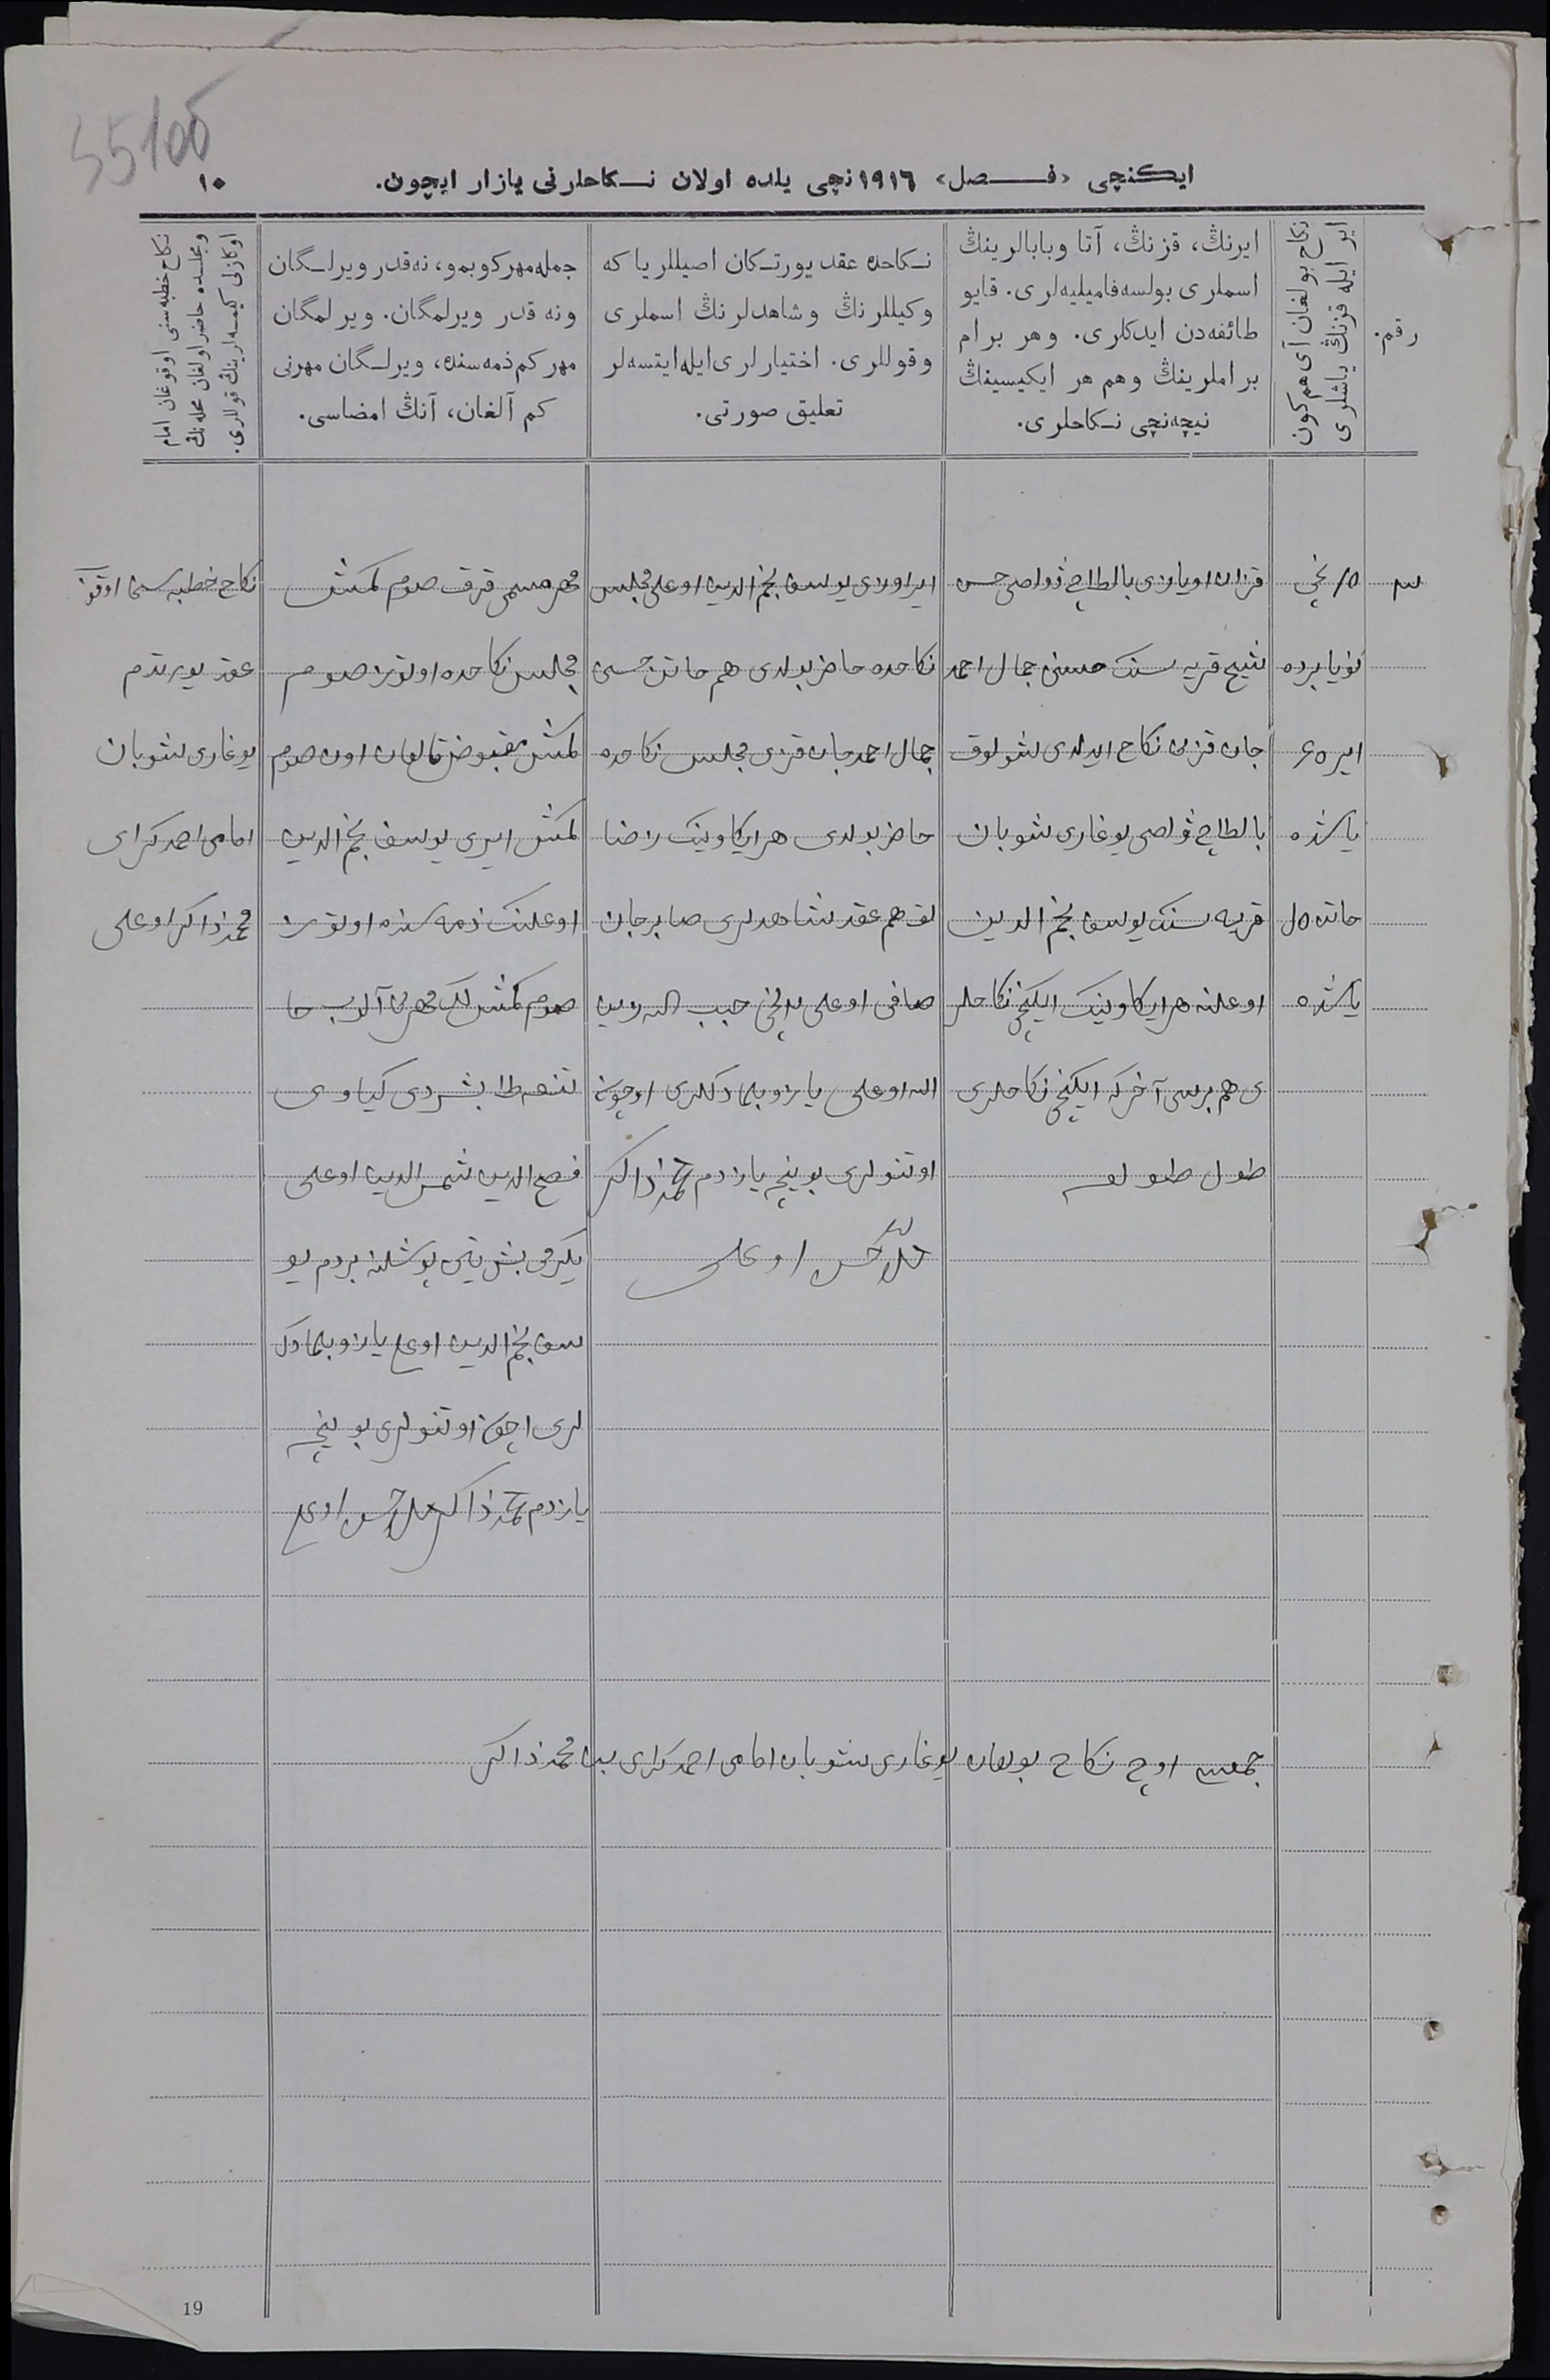 55 100
ایكنچی «فصل» ١٩١٦ نچی یلده اولان نكاحلرنی یازار ایچون.
١٠
رقم.
نكاح بولغان آی هم كون
ایر ایله قزنڭ یاشلری
ایرنڭ، قزنڭ، آتا وبابالرینڭ
اسملری بولسه فامیلیه‌لری. قایو
طائفه‌دن ایدكلری. وهر برام
براملرینڭ وهم هر ایكیسینڭ
نیچه‌نچی نكاحلری.
نكاحده عقد یورتكان اصیللر یا كه
وكیللرنڭ وشاهدلرنڭ اسملری
وقوللری. اختیارلری ایله ایتسه‌لر
تعلیق صورتی.
جمله مهر كوبمو، نه‌قدر ویرلگان
ونه قدر ویرلمگان. ویرلمگان
مهر كم ذمه‌سنده، ویرلگان مهرنی
كم آلغان، آنڭ امضاسی.
نكاح خطبه‌سنی اوقوغان امام
ومجلسده حاضر اولغان محله‌نڭ
اوكازنی كیمسه‌لرینڭ قوللری.
٣
١٥ نچی
نویابرده
ایر ٤٥
یاشنده
خاتن
یاشنده
قزان اویازی بالطاچ ولوصی
قریه سنك حسنی جمال احمد
جان قزی نكاح ایدلدی شولوق
بالطاچ ولصی یوغاری شوبان
قریه سنك یوسف نجم الدین
اوغلنه هر ایكاوینك ایكنچی نكاحلر
ی هم برسی آخركه ایكنچی نكاحلری
طول
ایر اوزی یوسف نجم الدین اوغلی مجلس
نكاحده حاضر بولدی هم خاتن حسنی
جمال احمد جان قزی مجلس نكاحده
حاضر بولدی هر ایكاوینك رضا
لق هم عقد شاهدلری صابرجان
صافی اوغلی حبیب الله
الله اوغلی یازو بلمادكلری اوچون
اوتنولری بوینچه یازدم محمد ذاكر
اوغلی
مهر مسمی قرق صوم كمش
مجلس نكاحده اوتوز صوم
كمش مقبوض قالغان اون صوم
كمش ایری یوسف نجم الدین
اوغلنك ذمه سنده اوتوز
صوم كمش لك مهرنی آلوب خا
تنغه طابشردی كیاوی
فصیح الدین شمس الدین اوغلی
یكرمی بش بردم یو
سف نجم الدین اوغلی یازو بلمادك
لری اچون اوتنولری بوینچه
یازدم محمد ذاكر اوغلی
نكاح خطبه سنی اوقوب
عقد یورتدم
یوغاری شوبان
امامی احمد كرای
محمد ذاكر اوغلی
جمعسی اوچ نكاح بولغان یوغاری شوبان امامی احمد كرای بن محمد ذاكر
19